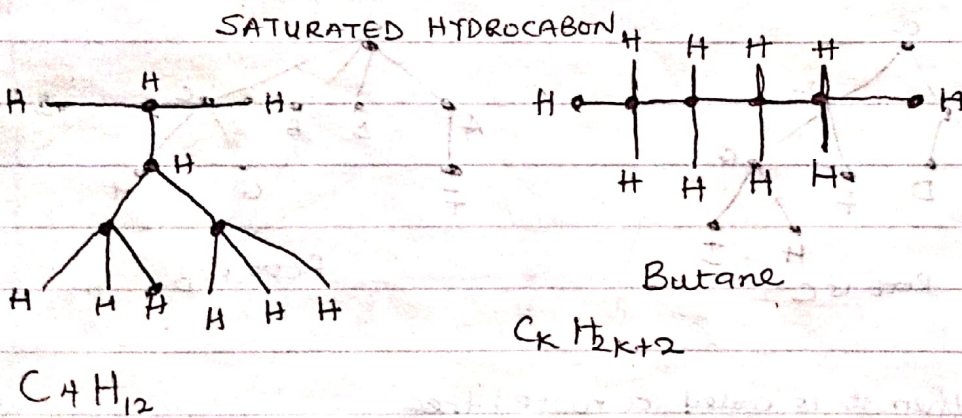 SATURATED HYDROCABON
H
H H
H
H H H H H H
C4H₁₂
H H H H
H H
H H H H
Butane
CₖH₂ₖ₊₂